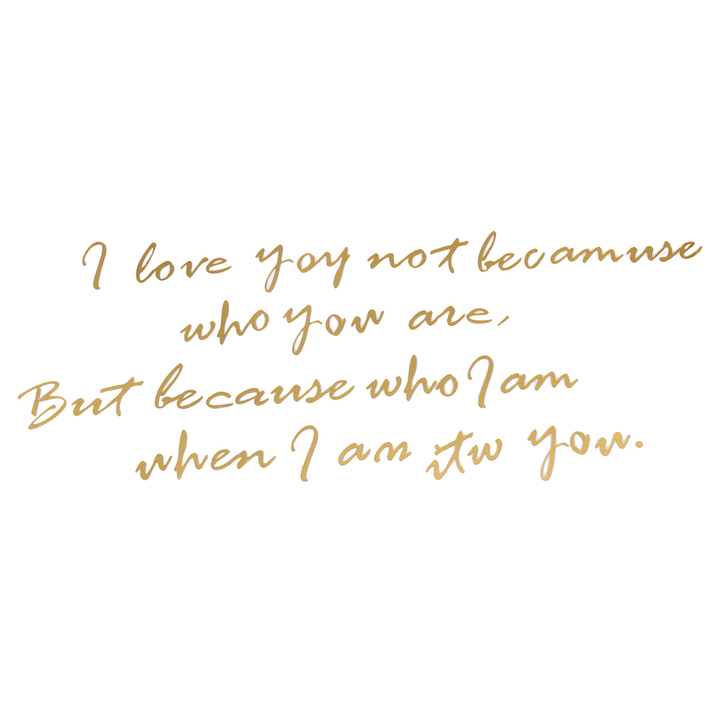 I love yoy not becamuse
who you are,
But because who I am
when I an itw you.